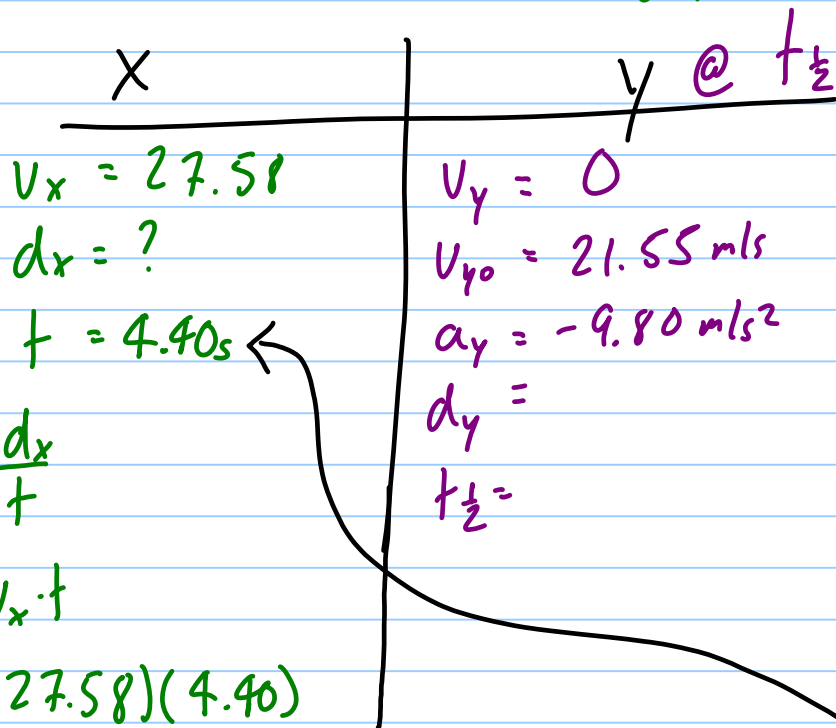 x
y @ t½
Vx = 27.58
dx = ?
t = 4.40s
dx
t
x·t
27.58)(4.40)
Vy = 0
Vyo = 21.55 m/s
ay = -9.80 m/s²
dy =
t½ =